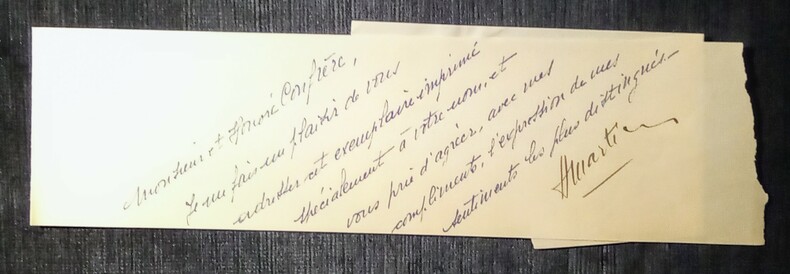 Monsieur et Honoré Confrère,
Je me fais un plaisir de vous
adresser cet exemplaire imprimé
spécialement à votre nom, et
vous prie d'agréer, avec mes
compliments, l'expression de mes
sentiments les plus distingués.—